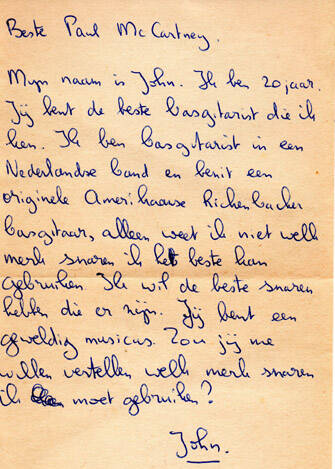 Beste Paul McCartney.
Mijn naam is John. Ik ben 20 jaar.
Jij bent de beste basgitarist die ik
ken. Ik ben basgitarist in een
Nederlandse band en bezit een
originele Amerikaanse Rickenbacker
basgitaar, alleen weet ik niet welk
merk snaren ik het beste kan
gebruiken. Ik wil de beste snaren
hebben die er zijn. Jij bent een
geweldig musicus. Zou jij me
willen vertellen welk merk snaren
ik moet gebruiken?
John.